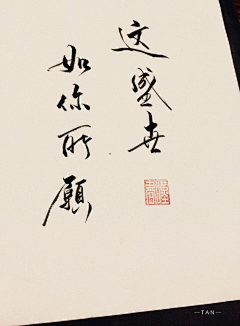 这盛世
如你所愿
—TAN—